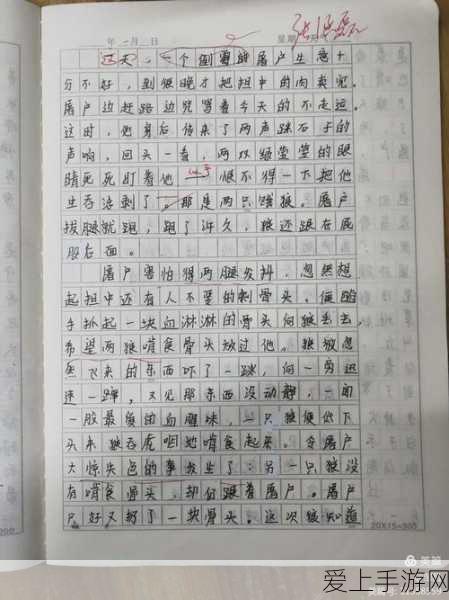 年 月 日 星期
这天，一个倒霉的屠户生意十
分不好，到很晚才把担中的肉卖完。
屠户边赶路边咒骂着今天的不走运。
这时，他身后传来了两声踩石子的
声响，回头一看，两双绿莹莹的眼
睛死死盯着他，恨不得一下把他
生吞活剥了。那是两只饿狼。屠户
拔腿就跑，跑了许久，狼还跟在屁
股后面。
屠户害怕得两腿发抖，忽然想
起担中还有人不要的剩骨头，便随
手抓起一块血淋淋的骨头向狼丢去，
希望两狼啃食骨头放过他。狼被忽
然飞来的东西吓了一跳，向一旁迅
速一蹿，又见那东西没动静，一闻
一股最爱的血腥味，一只狼便低下
头来狼吞虎咽地啃食起来。令屠户
大惊失色的事发生了：另一只狼没
有啃食骨头，却仍跟着屠户。屠户
只好又扔了一块骨头。这次狼知道
20X15=300
美篇
爱上手游网